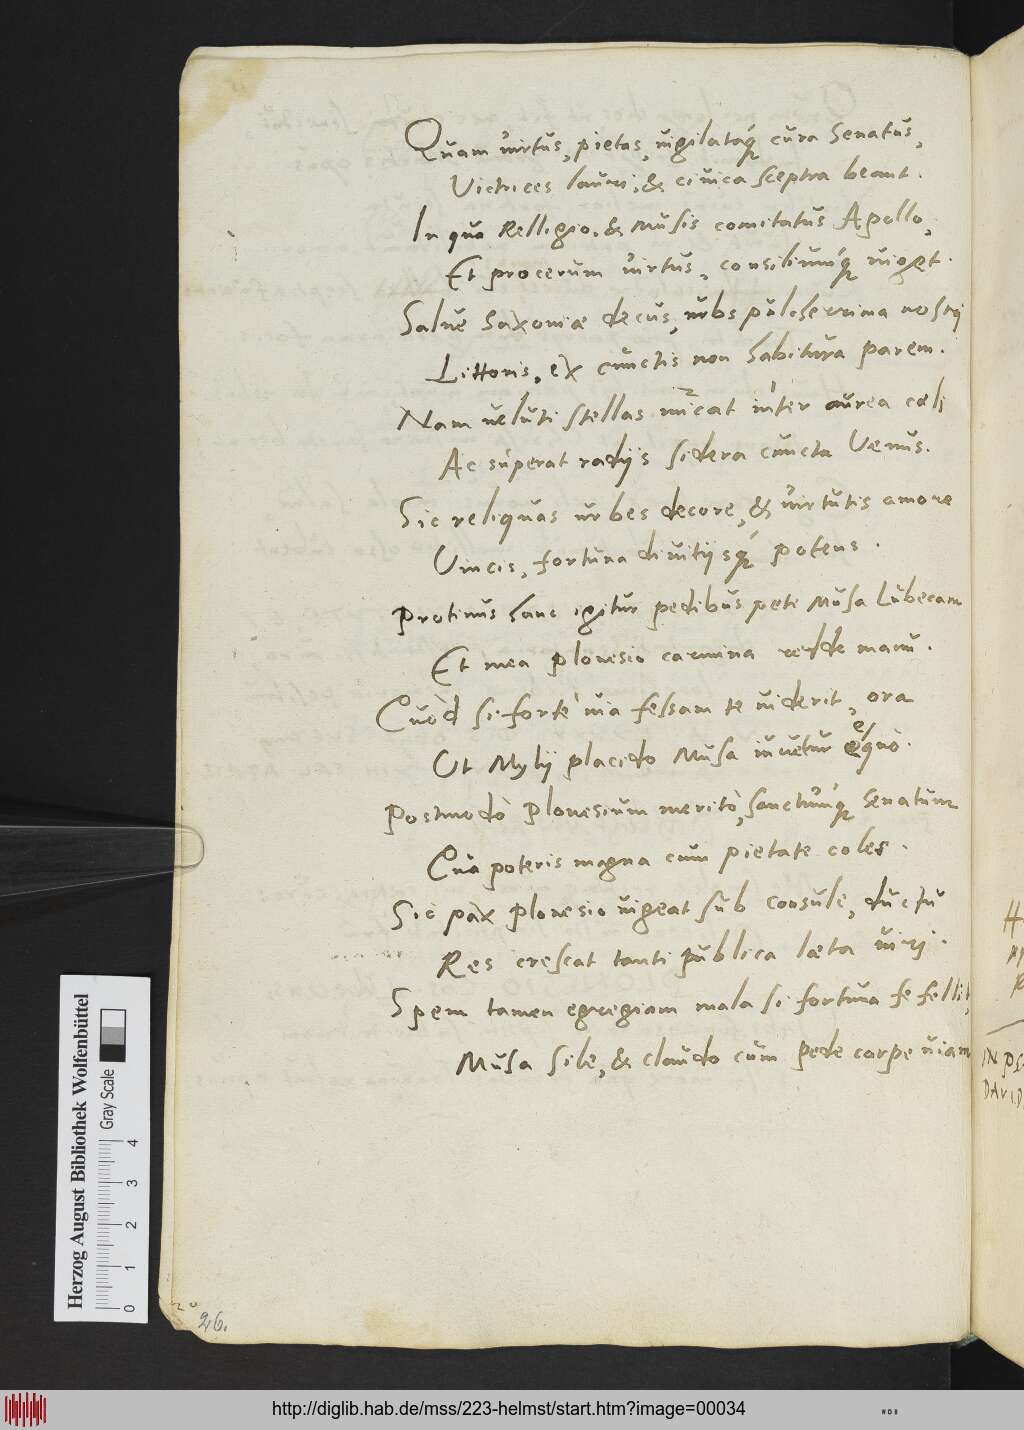 Quam uirtus, pietas, uigilataq́ꝫ cura Senatus,
Victrices lauri, & ciuica sceptra beant.
In qua Relligio, & Musis comitatus Apollo,
Et procerum uirtus, consiliumq́ꝫ uiget.
Salue Saxoniæ decus, urbs pulcherrima nostri
Littoris, ex cunctis non habitura parem.
Nam ueluti stellas micat inter aurea cæli
Ac superat radijs sidera cuncta Venus.
Sic reliquas urbes decore, & uirtutis amore
Vincis, fortuna diuitijsq́ꝫ potens.
Protinus hanc igitur pedibus pete Musa Lubecam
Et mea Plonesio carmina redde manu.
Quòd si fortè uia fessam te uiderit, ora
Ut Mylij placido Musa iuuetur equo.
Postmodò Plonesium meritò, sanctumq́ꝫ Senatum
Qua poteris magna cum pietate coles.
Sic pax Plonesio uigeat sub Consule, ductu
Res crescat tanti publica læta uiri.
Spem tamen egregiam mala si fortuna fefellit,
Musa sile, & claudo cum pede carpe uiam
26.
IN PS
DAVID
Herzog August Bibliothek Wolfenbüttel
Gray Scale
0 1 2 3 4
http://diglib.hab.de/mss/223-helmst/start.htm?image=00034